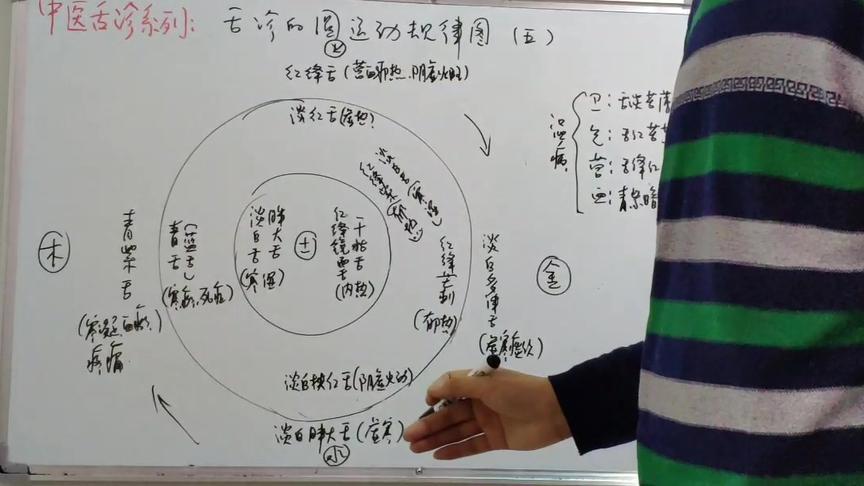 中医舌诊系列: 舌诊的圆运动规律图 (五)
火
红绛舌(营血郁热.阴虚火旺)
淡红舌
卫: 舌淡苔薄
气: 舌红苔
营: 舌绛红
血: 青紫暗
温病
木
青紫舌
(寒凝.血瘀.)
疼痛
青舌
(蓝舌)
(寒病.死症)
淡白舌
胖大舌
(寒湿)
土
红绛绕
干枯舌
(内热)
红绛芒刺
(郁热)
淡白多津舌
(虚寒痰饮)
金
淡白挟红舌(阴虚火动)
淡白胖大舌(虚寒)
水